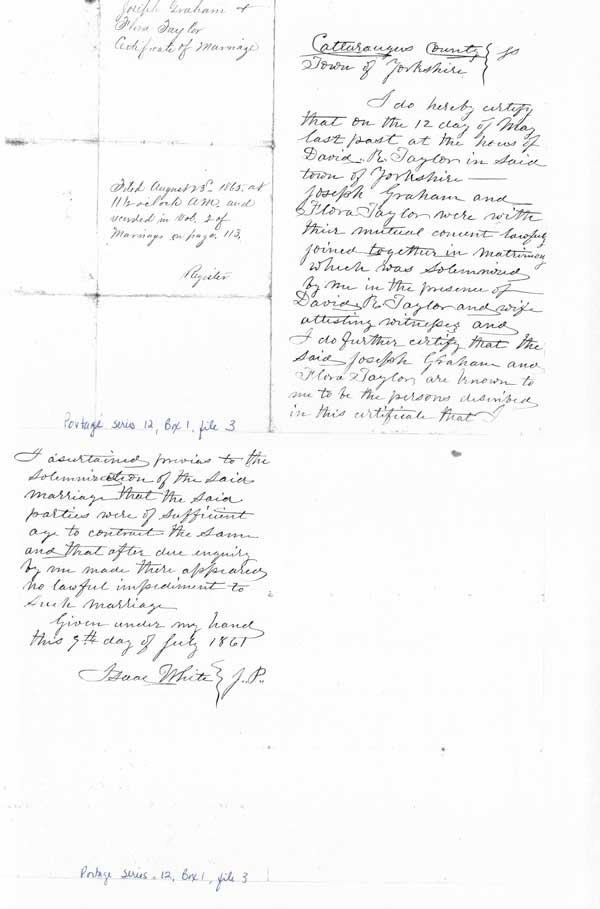 Joseph Graham &
Flora Taylor
Certificate of Marriage
Filed August 23d 1865, at
11½ oclock A.M. and
recorded in Vol. 2 of
Marriags on page. 113.
Register
Cattaraugus County } ss
Town of Yorkshire
I do hereby certify
that on the 12 day of May
last past at the hous of
David. R. Taylor in said
town of Yorkshire —
Joseph Graham and
Flora Taylor were with
their mutual concent lawfuly
joined together in matrimony
which was solemnized
by me in the presence of
David. R. Taylor and wife
attesting witneses and
I do further certify that the
said Joseph Graham and
Flora Taylor are known to
me to be the persons discribed
in this certificate that I
Portage series 12, Box 1, file 3
I asurtained previas to the
solemnization of the said
marriage that the said
parties were of sufficient
age to contract the same
and that after due enquiry
by me made there appeared
no lawful impediment to
such marriage
Given under my hand
this 9th day of July 1861
Isaac White } J. P.
Portage series. 12, Box 1, file 3